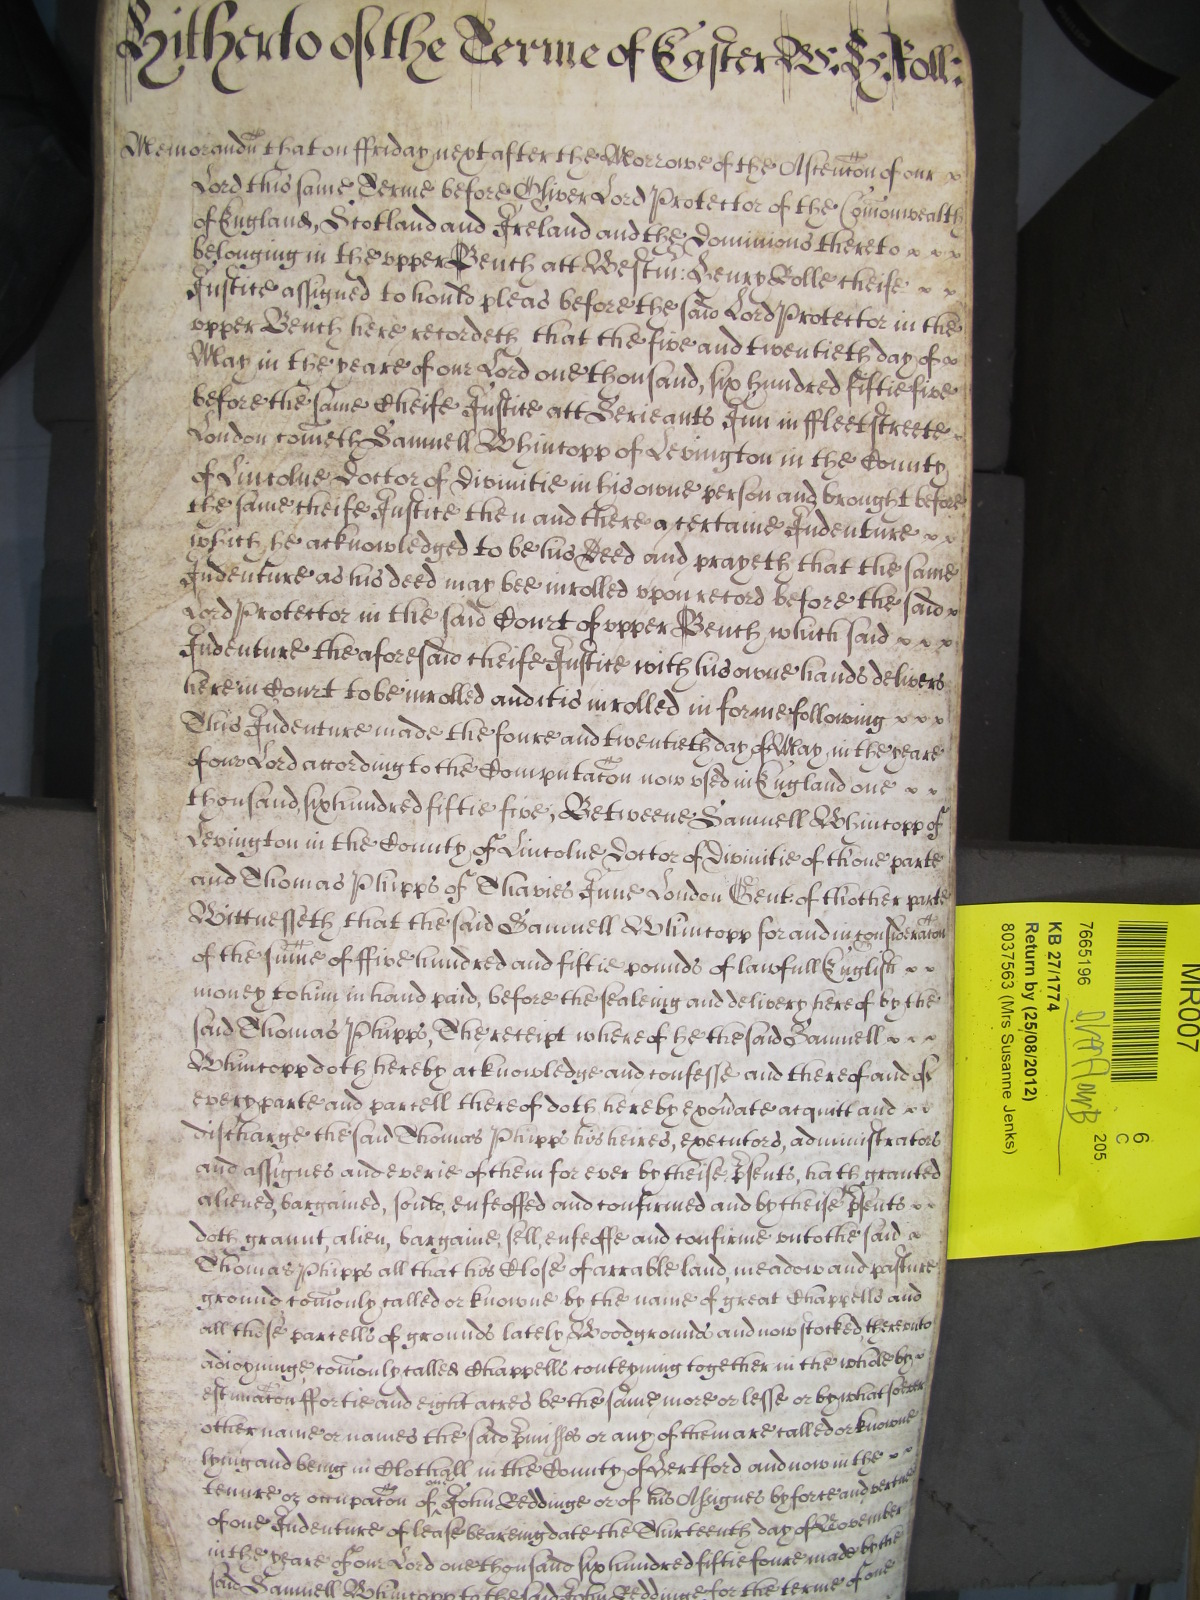 Hitherto of the Terme of Easter W: H: Roll:
Memorandu that on ffriday next after the Morrowe of the Ascencon of our
Lord this same Terme before Oliver Lord Protector of the Comonwealth
of England, Scotland and Ireland and the Dominions thereto
belonging in the upper Bench att Westm: Henry Rolle cheife
Justice assigned to hould pleas before the said Lord Protector in the
upper Bench here recordeth that the five and twentieth day of
May in the yeare of our Lord one thousand, six hundred fiftie five
before the same Cheife Justice att Serieants Inn in ffleetstreete
London cometh Samuell Whincopp of Levington in the County
of Lincolne Doctor of Divinitie in his owne person and brought before
the same cheife Justice then and there a certaine Indenture
which he acknowledged to be his Deed and prayeth that the same
Indenture as his deed may bee inrolled upon record before the said
Lord Protector in the said Court of upper Bench, which said
Indenture the aforesaid cheife Justice with his owne hands delivers
here in Court to be inrolled and it is inrolled in forme following
This Indenture made the foure and twentieth day of May in the yeare
of our Lord according to the Computacon now used in England one
thousand, six hundred fiftie five, Betweene Samuell Whincopp of
Levington in the County of Lincolne Doctor of Divinitie of thone parte
and Thomas Phipps of Thavies Inne London Gent: of thother parte
Wittnesseth that the said Samuell Whincopp for and in consideracon
of the sume of ffive hundred and fiftie pounds of lawfull English
money to him in hand paid, before the sealeing and delivery hereof by the
said Thomas Phipps, The receipt whereof he the said Samuell
Whincopp doth hereby acknowledge and confesse and thereof and of
every parte and parcell thereof doth hereby exonate acquitt and
discharge the said Thomas Phipps his heires, executors, administrators
and assignes and everie of them for ever by theise psents, hath granted
aliened, bargained, sould, enfeoffed and confirmed and by theise psents
doth graunt, alien, bargaine, sell, enfeoffe and confirme unto the said
Thomas Phipps all that his Close of arrable land, meadow and pasture
ground comonly called or knowne by the name of great Chappells and
all those parcells of grounds lately Woodgrounds and now stocked thereunto
adioyninge comonly called Chappells conteyning together in the whole by
estimacon ffortie and eight acres be the same more or lesse or by what soever
other name or names the said pmisses or any of them are called or knowne
lying and being in Clothall in the County of Hertford and now in the
tenure or occupacon of one John Reddinge or of his Assignes by force and vertue
of one Indenture of lease beareing date the Thirteenth day of November
in the yeare of our Lord one thousand six hundred fiftie foure made by the
said Samuell Whincopp to the said John Reddinge for the terme of one
MR007
6
C
205
7665196
KB 27/1774
Return by (25/08/2012)
8037563 (Mrs Susanne Jenks)